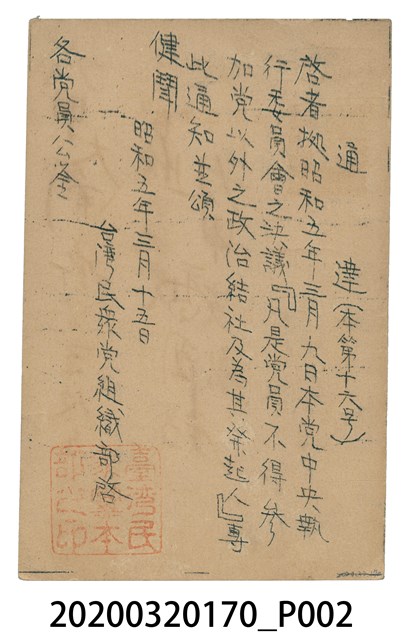 通達(本第十六号)
啓者拠昭和五年三月九日本党中央執
行委員會之决議『凡是党員不得参
加党以外之政治結社及為其發起人』専
此通知並頌
健闘
昭和五年三月十五日
台湾民衆党組織部啓
各党員公鑒
臺灣民
部之印
20200320170_P002